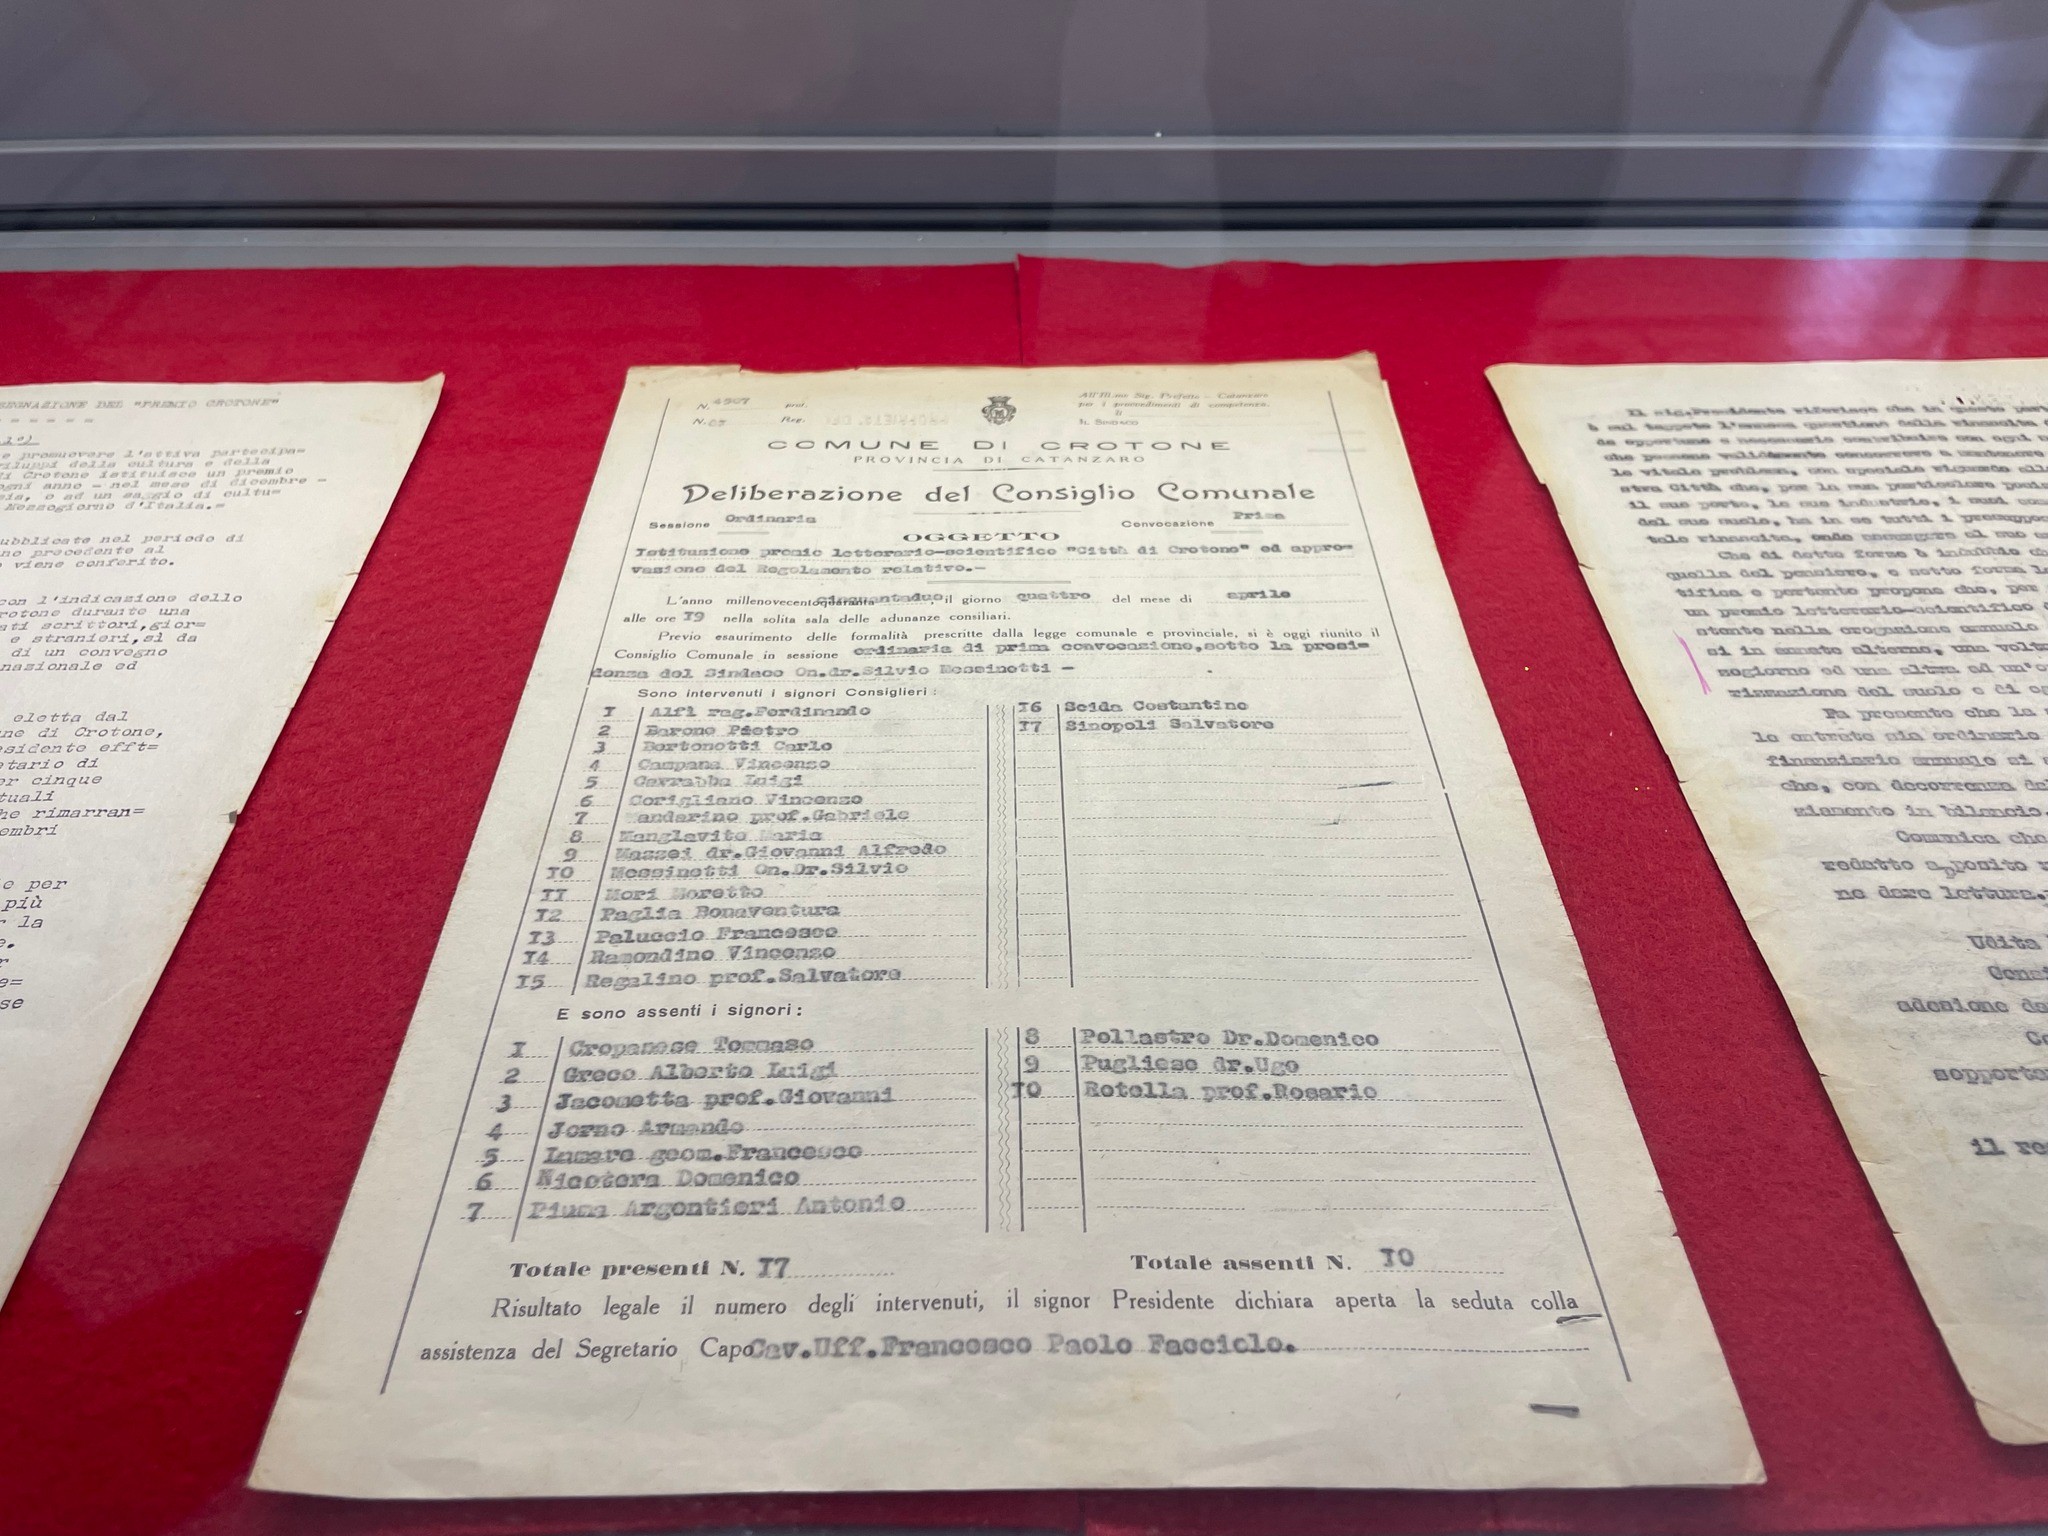 "PREMIO CROTONE"
e promuovere l'attiva partecipa=
viluppi della cultura e della
i Crotone istituisce un premio
ogni anno - nel mese di dicembre -
sia, o ad un saggio di cultu=
Mezzogiorno d'Italia.=
ubblicate nel periodo di
no precedente al
viene conferito.
con l'indicazione dello
rotone durante una
ati scrittori,gior=
e stranieri,sì da
di un convegno
nazionale ed
eletta dal
ne di Crotone,
esidente efft=
etario di
er cinque
tuali
he rimarran=
embri
e per
più
r la
e.
r
e=
se
N. 4507 prot.
N. Reg.
All'Ill.mo Sig. Prefetto - Catanzaro
per i procedimenti di competenza.
IL SINDACO
COMUNE DI CROTONE
PROVINCIA DI CATANZARO
Deliberazione del Consiglio Comunale
Sessione Ordinaria Convocazione Prima
OGGETTO
Istituzione premio letterario-scientifico "Città di Crotone" ed appro=
vazione del Regolamento relativo.-
L'anno millenovecentoquaranta cinquantadue, il giorno quattro del mese di aprile
alle ore 19 nella solita sala delle adunanze consiliari.
Previo esaurimento delle formalità prescritte dalla legge comunale e provinciale, si è oggi riunito il
Consiglio Comunale in sessione ordinaria di prima convocazione,sotto la presi=
denza del Sindaco On.dr.Silvio Messinetti -
Sono intervenuti i signori Consiglieri:
1 Alfì rag.Ferdinando
2 Barone Pietro
3 Bortonotti Carlo
4 Campana Vincenzo
5 Cavrabba Luigi
6 Corigliano Vincenzo
7 Mandarino prof.Gabriele
8 Manglavito Maria
9 Massei dr.Giovanni Alfredo
10 Messinetti On.Dr.Silvio
11 Mori Moretto
12 Paglia Bonaventura
13 Paluccio Francesco
14 Ramondino Vincenzo
15 Regalino prof.Salvatore
16 Scida Costantino
17 Sinopoli Salvatore
E sono assenti i signori:
1 Cropanese Tommaso
2 Greco Alberto Luigi
3 Jacometta prof.Giovanni
4 Jorno Armando
5 Lumare geom.Francesco
6 Nicotera Domenico
7 Piuma Argentieri Antonio
8 Pollastro Dr.Domenico
9 Pugliese dr.Ugo
10 Rotella prof.Rosario
Totale presenti N. 17 Totale assenti N. 10
Risultato legale il numero degli intervenuti, il signor Presidente dichiara aperta la seduta colla
assistenza del Segretario Capo Cav.Uff.Francesco Paolo Facciolo.
Il sig.Presidente riferisce che in questo
è sul tappeto l'annosa questione della rinascita
da opportuno e necessario contribuire con ogni
che possono validamente concorrere a mantenere
le vitale problema, con speciale riguardo
stra Città che, per la sua particolare
il suo porto, le sue industrie, i suoi
del suo suolo, ha in se tutti i
tale rinascita, onde
Che di dette forme è indubbio
quella del pensiero, e sotto forma
tifica e pertanto propone che, per
un premio letterario-scientifico
stente nella erogazione annuale
si in annate alterne, una volta
zogiorno ed una altra ad un'
rizzazione del suolo e di
Fa presente che la
le entrate sia ordinarie
finanziario annuale si
che, con decorrenza dal
ziamento in bilancio,
Comunica che
redatto apposito
ne dare lettura.
Udita
adesione
sopporta
il